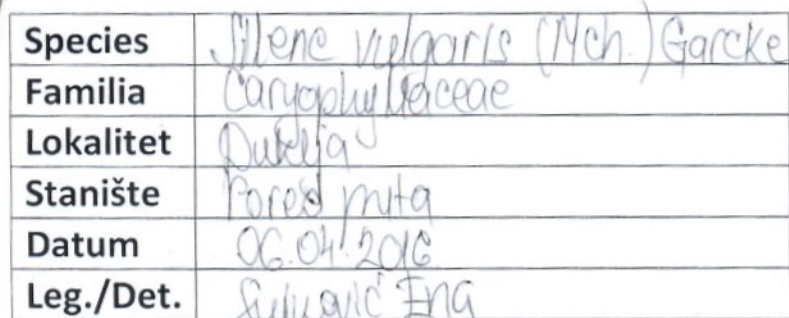 Species Silene vulgaris (Mch.) Garcke
Familia Caryophyllaceae
Lokalitet Duklja
Stanište Pored puta
Datum 06.04.2016
Leg./Det. Ena